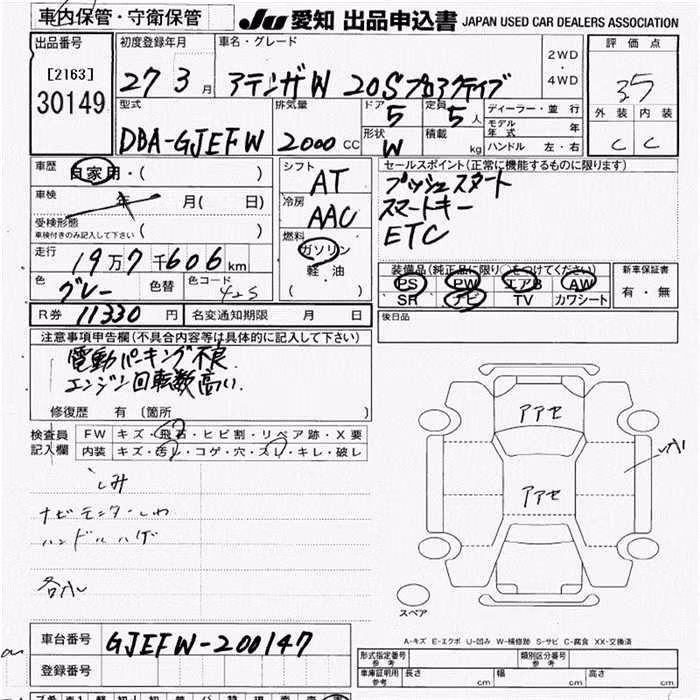 車内保管・守衛保管 JU 愛知 出品申込書 JAPAN USED CAR DEALERS ASSOCIATION
出品番号 初度登録年月 車名・グレード 評価点
[2163] 27 3月 アテンザW 20Sプロアクティブ 2WD・4WD 3.5
30149
型式 排気量 ドア 5 定員 5人 ディーラー・並行 外装 内装
DBA-GJEFW 2000CC 形状 W 積載 kg モデル年式 年 C C
ハンドル 左・右
車歴 自家用・( ) シフト AT セールスポイント(正常に機能するものに限ります)
車検 年 月( 日) 冷房 AAC プッシュスタート
受検形態 スマートキー
車検付きのみ記入して下さい ( ) 燃料 ETC
走行 19万7千606km ガソリン
色 グレー 色替 色コード 42S 軽油 ( )
装備品(純正品に限り○をつけてください) 新車保証書
PS PW エアB AW 有・無
SR ナビ TV カワシート
R券 11330円 名変通知期限 月 日 後日品
注意事項申告欄(不具合内容等は具体的に記入して下さい)
電動パーキング不良
エンジン回転数高い
修復歴 有 (箇所 )
検査員 FW キズ・飛石・ヒビ割・リペア跡・X要
記入欄 内装 キズ・汚レ・コゲ・穴・スレ・キレ・破レ
しみ
ナビモニターしわ
ハンドルハゲ
各小
アアセ
アアセ
スペア
A-キズ E-エクボ U-凹み W-補修跡 S-サビ C-腐食 XX-交換済
車台番号 GJEFW-200147
登録番号
形式指定番号 参考 類別区分番号 参考
車庫証明用 参考 長さ cm 幅 cm 高さ cm